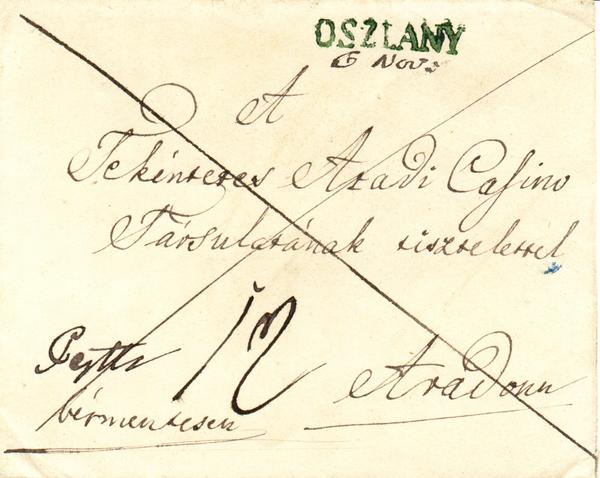 OSZLANY
6 Nov
A
Tekéntetes Aradi Casino
Társulatának tisztelettel
12
Pesth
bérmentesen
Aradonn